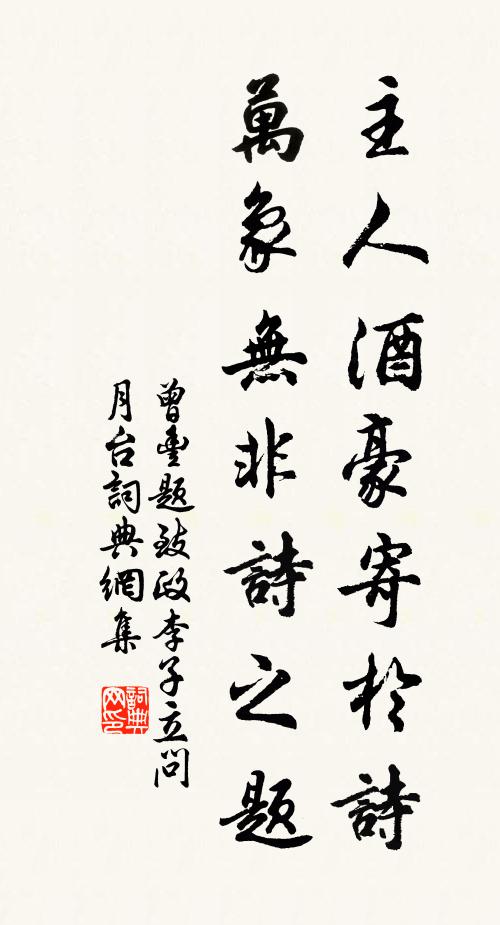 主人酒豪寄於詩
萬象無非詩之題
曾豊題致政李子立問
月台詞典網集
詞典
网印